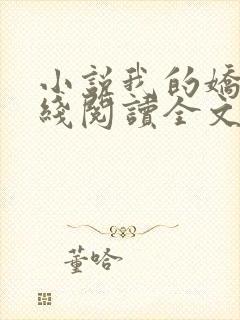 小説我的嬌
綫閱讀全文
董哈